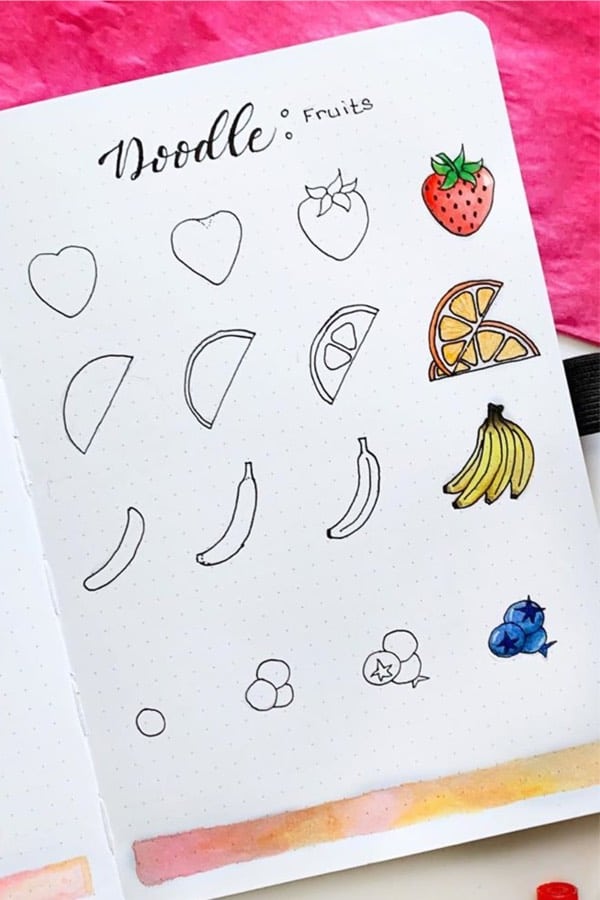 Doodle: Fruits